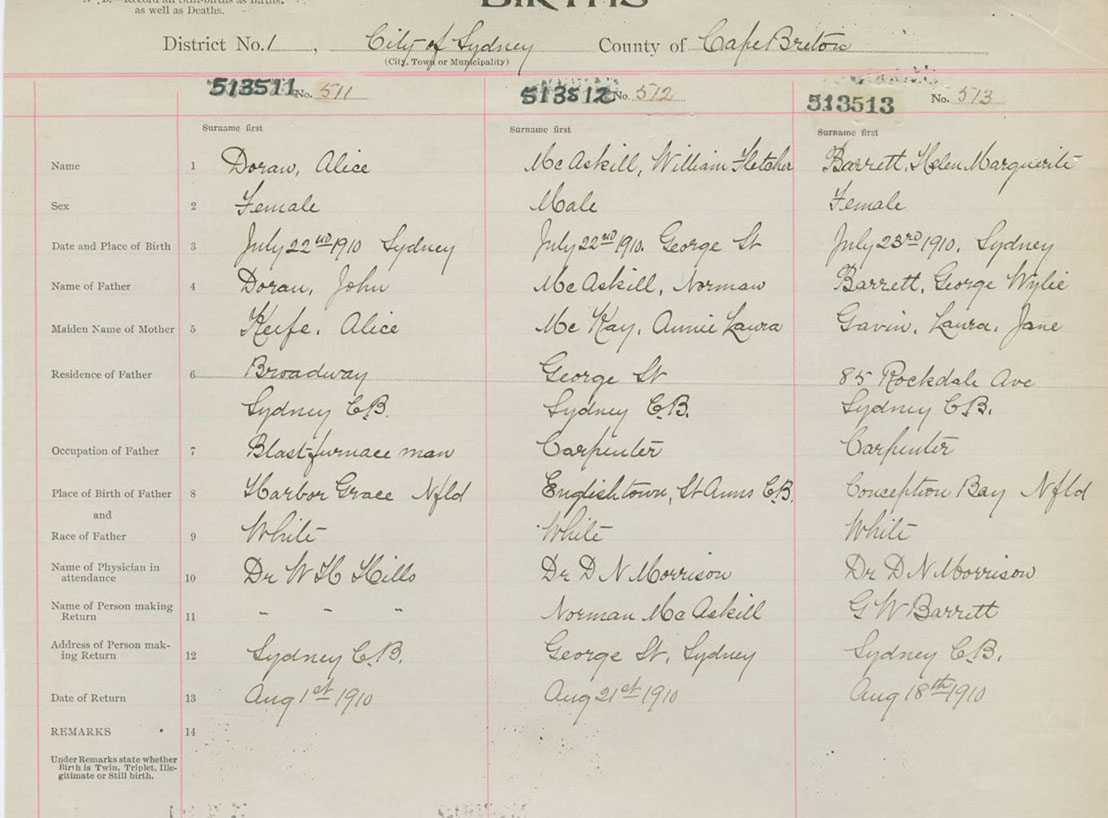 N. B.—Record all Still-births as Births.
as well as Deaths.
BIRTHS
District No. 1, City of Sydney County of Cape Breton
(City, Town or Municipality)
513511 No. 511 513512 No 512 513513 No. 513
Surname first Surname first Surname first
Name 1 Doran, Alice McAskill, William Fletcher Barrett, Helen Marguerite
Sex 2 Female Male Female
Date and Place of Birth 3 July 22nd 1910 Sydney July 22nd 1910. George St July 23rd 1910. Sydney
Name of Father 4 Doran, John McAskill, Norman Barrett, George Wylie
Maiden Name of Mother 5 Keife, Alice McKay, Annie Laura Gavin, Laura, Jane
Residence of Father 6 Broadway George St 85 Rockdale Ave
Sydney C.B. Sydney C.B. Sydney C.B.
Occupation of Father 7 Blast-furnace man Carpenter Carpenter
Place of Birth of Father 8 Harbor Grace Nfld Englishtown, St Anns C.B. Conception Bay Nfld
and
Race of Father 9 White White White
Name of Physician in
attendance 10 Dr W H Hills Dr D N Morrison Dr D N Morrison
Name of Person making
Return 11 " " " Norman McAskill G W Barrett
Address of Person mak-
ing Return 12 Sydney C.B. George St, Sydney Sydney C.B.
Date of Return 13 Aug 1st 1910 Aug 21st 1910 Aug 18th 1910
REMARKS 14
Under Remarks state whether
Birth is Twin, Triplet, Ille-
gitimate or Still birth.